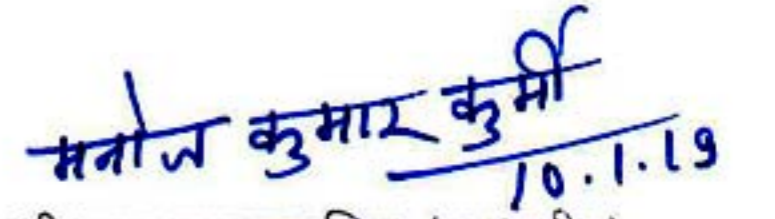 मनोज कुमार कुर्मी
10.1.19